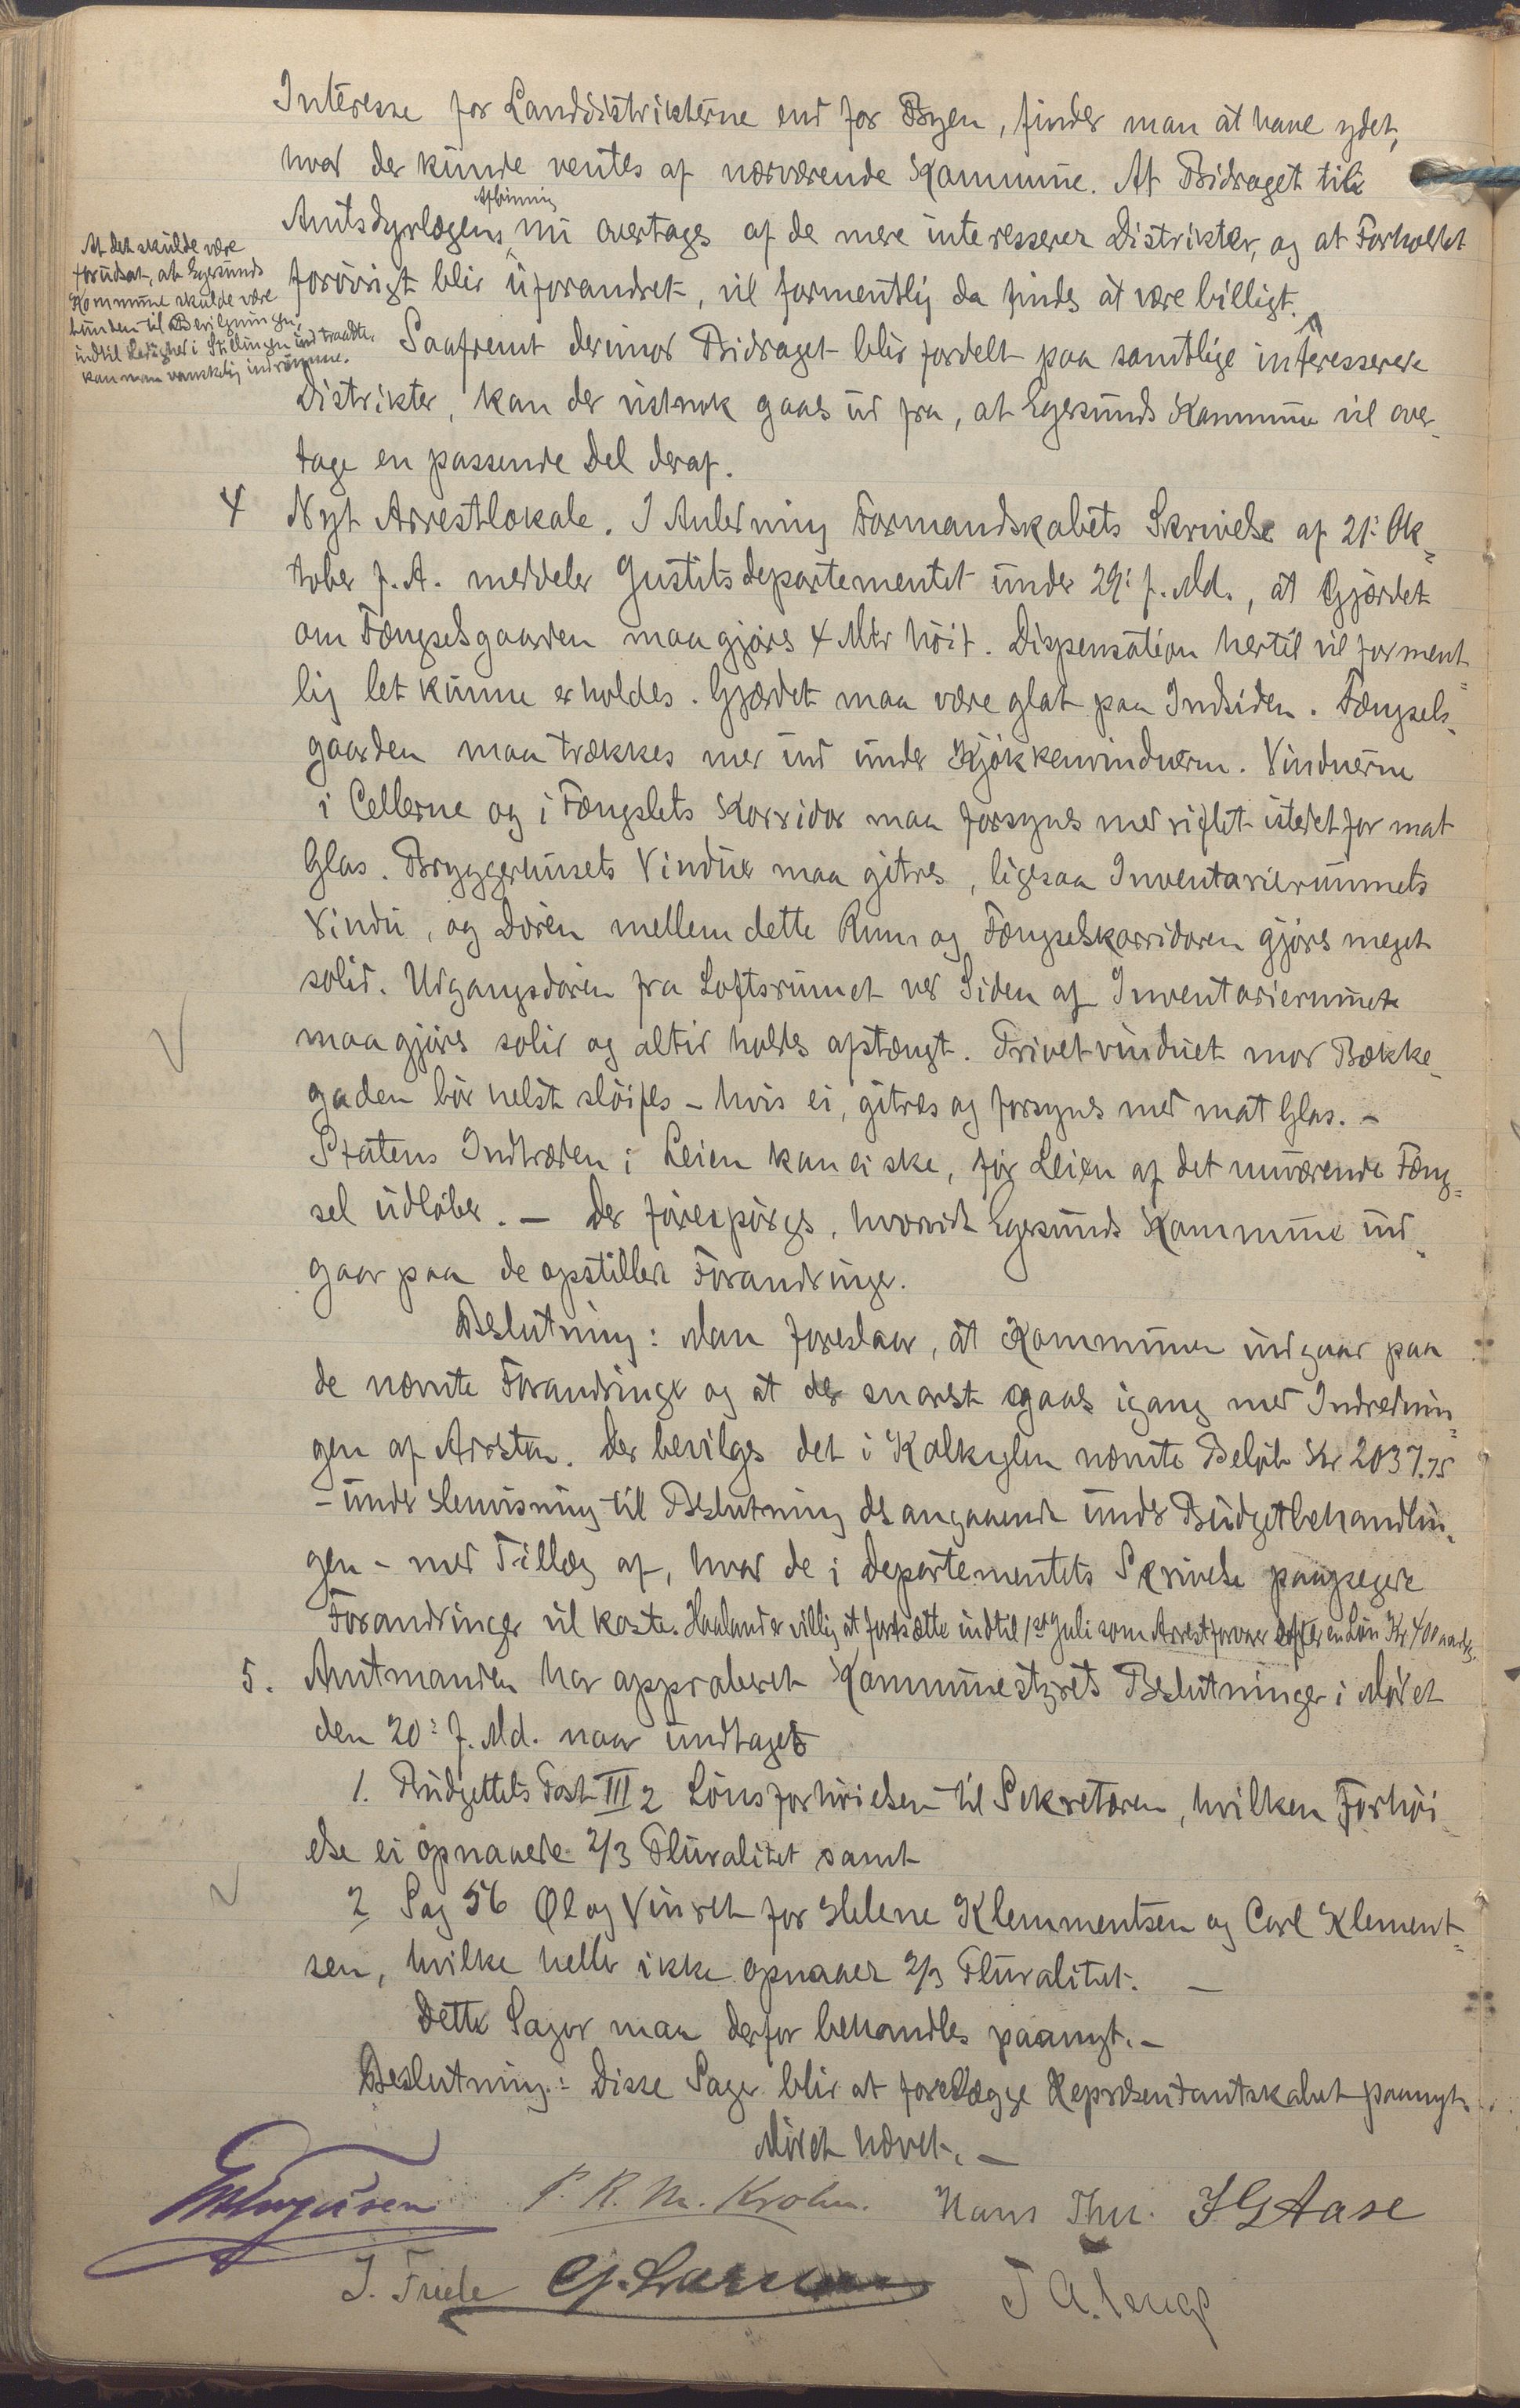 Interesse for Landdistrikterne end for Byen, finder man at have ydet,
hvad der kunde ventes af nærværende Kommune. At Bidraget til
Amtsdyrlægens Aflønning nu overtages af de mere interesserede Distrikter, og at Forholdet
forövrigt blir uforandret, vil formentlig da findes at være billigt.
At det skulde være
forudsat, at Egersunds
Kommune skulde være
bunden til Bevilgningen,
indtil Ledighed i Stillingen indtraadte,
kan man vanskelig indrömme.
Saafremt derimod Bidraget blir fordelt paa samtlige interesserede
Distrikter, kan der vistnok gaaes ud fra, at Egersunds Kommune vil over-
tage en passende Del deraf.
4 Nyt Arrestlokale. I Anledning Formandskabets Skrivelse af 21: Ok-
tober f. A. meddeler Justitsdepartementet under 29: f. Md., at Gjærdet
om Fængselsgaarden maa gjöres 4 Mtr höit. Dispensation hertil vil forment-
lig let kunne erholdes. Gjærdet maa være glat paa Indsiden. Fængsels-
gaarden maa trækkes mer ind under Kjökkenvinduerne. Vinduerne
i Cellerne og i Fængslets Korridor maa forsynes med riflet istedetfor mat
Glas. Bryggerhusets Vindue maa gitres, ligesaa Inventarierummets
Vindu, og Dören mellem dette Rum og Fængselskorridoren gjöres meget
solid. Udgangsdören fra Loftsrumet ved Siden af Inventarierumet
maa gjöres solid og altid holdes afstængt. Privetvinduet mod Bække-
gaden bör helst slöifes - hvis ei, gitres og forsynes med mat Glas. -
Statens Indtræden i Leien kan ei ske, för Leien af det nuværende Fæng-
sel udlöber. - Der forespörges, hvorvidt Egersunds Kommune ind-
gaar paa de opstillede Forandringer.
Beslutning: Man foreslaar, at Kommunen indgaar paa
de nævnte Forandringer og at der snarest gaaes igang med Indrednin-
gen af Arresten. Der bevilges det i Kalkylen nævnte Belöb Kr 2037.75
- under Henvisning til Beslutning desangaaende under Budgetbehandlin-
gen - med Tillæg af, hvad de i Departementets Skrivelse paapegede
Forandringer vil koste. Haaland er villig at fortsætte indtil 1st Juli som Arrestforvarer efter en Lön Kr 400 aarlig.
5. Amtmanden har approberet Kommunestyrets Beslutninger i Mödet
den 20: f. Md. naar undtages
1. Budgettets Post III 2 Lönsforhöielsen til Sekretæren, hvilken Forhöi-
else ei opnaaede 2/3 Pluralitet samt
2 Sag 56 Øl og Vinret for Helene Klemmentsen og Carl Klement-
sen, hvilke heller ikke opnaaede 2/3 Pluralitet. -
Dette Sager maa derfor behandles paanyt. -
Beslutning: Disse Sager blir at forelægge Repræsentantskabet paanyt.
Mödet hævet. -
P. R. M. Krohn. Hans Thu. J G Aase